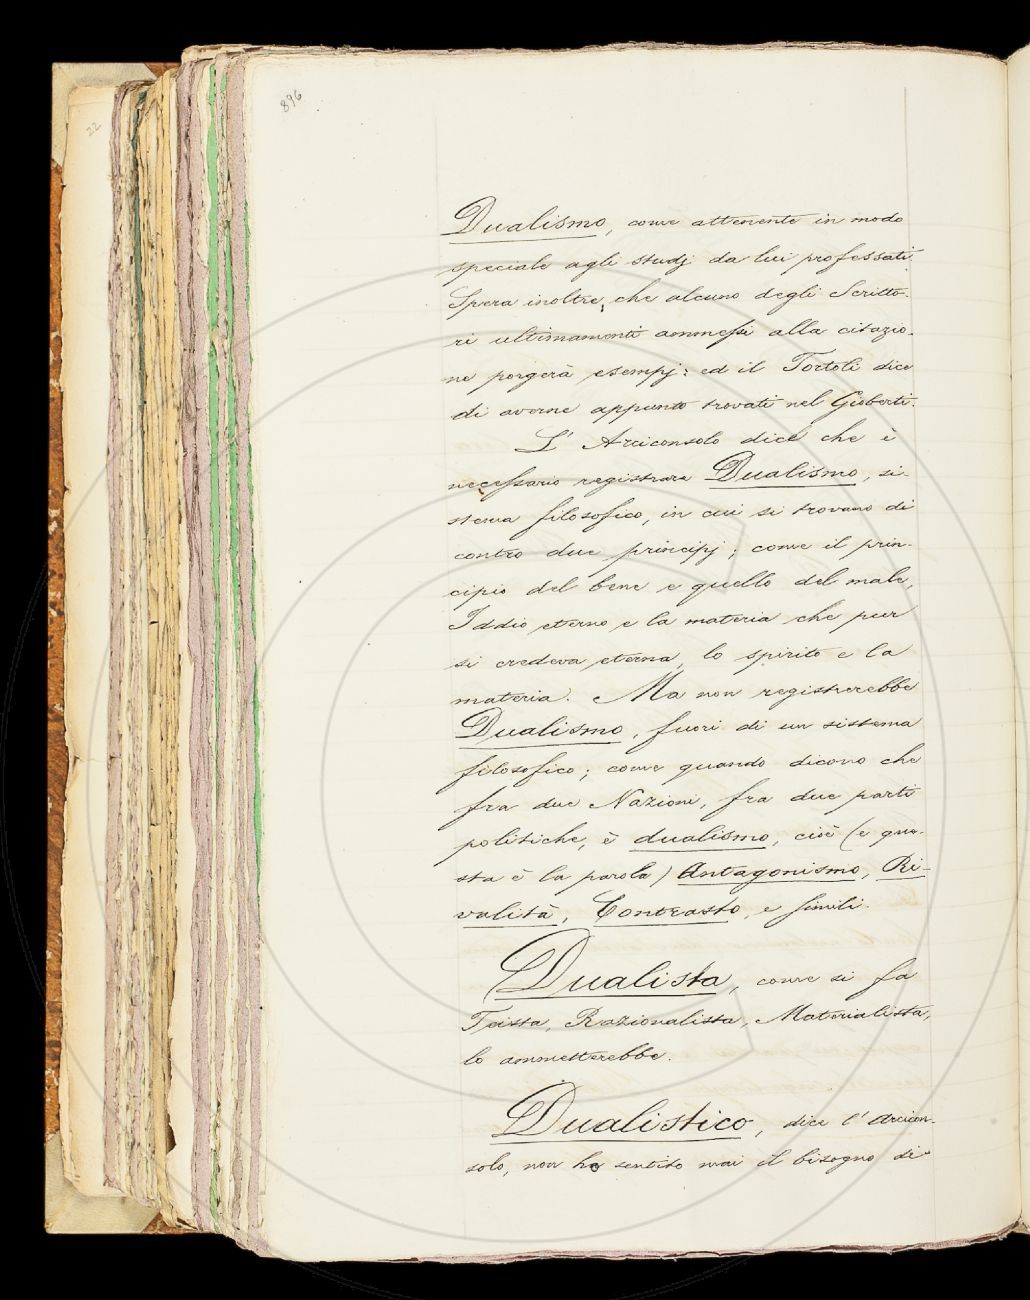 896
22
Dualismo, come attenente in modo
speciale agli studj da lui professati.
Spera inoltre, che alcuno degli Scritto-
ri ultimamente ammessi alla citazio-
ne porgerà esempj: ed il Tortoli dice
di averne appunto trovati nel Gioberti.
L' Arciconsolo dice che è
necessario registrare Dualismo, si-
stema filosofico, in cui si trovano di
contro due principj; come il prin-
cipio del bene e quello del male,
Iddio eterno e la materia che pur
si credeva eterna, lo spirito e la
materia. Ma non registrerebbe
Dualismo, fuori di un sistema
filosofico; come quando dicono che
fra due Nazioni, fra due parti
politiche, è dualismo, cioè (e que-
sta è la parola) Antagonismo, Ri-
valità, Contrasto, e simili.
Dualista, come si fa
Teista, Razionalista, Materialista,
lo ammetterebbe.
Dualistico, dice l' Arcicon-
solo, non ho sentito mai il bisogno di